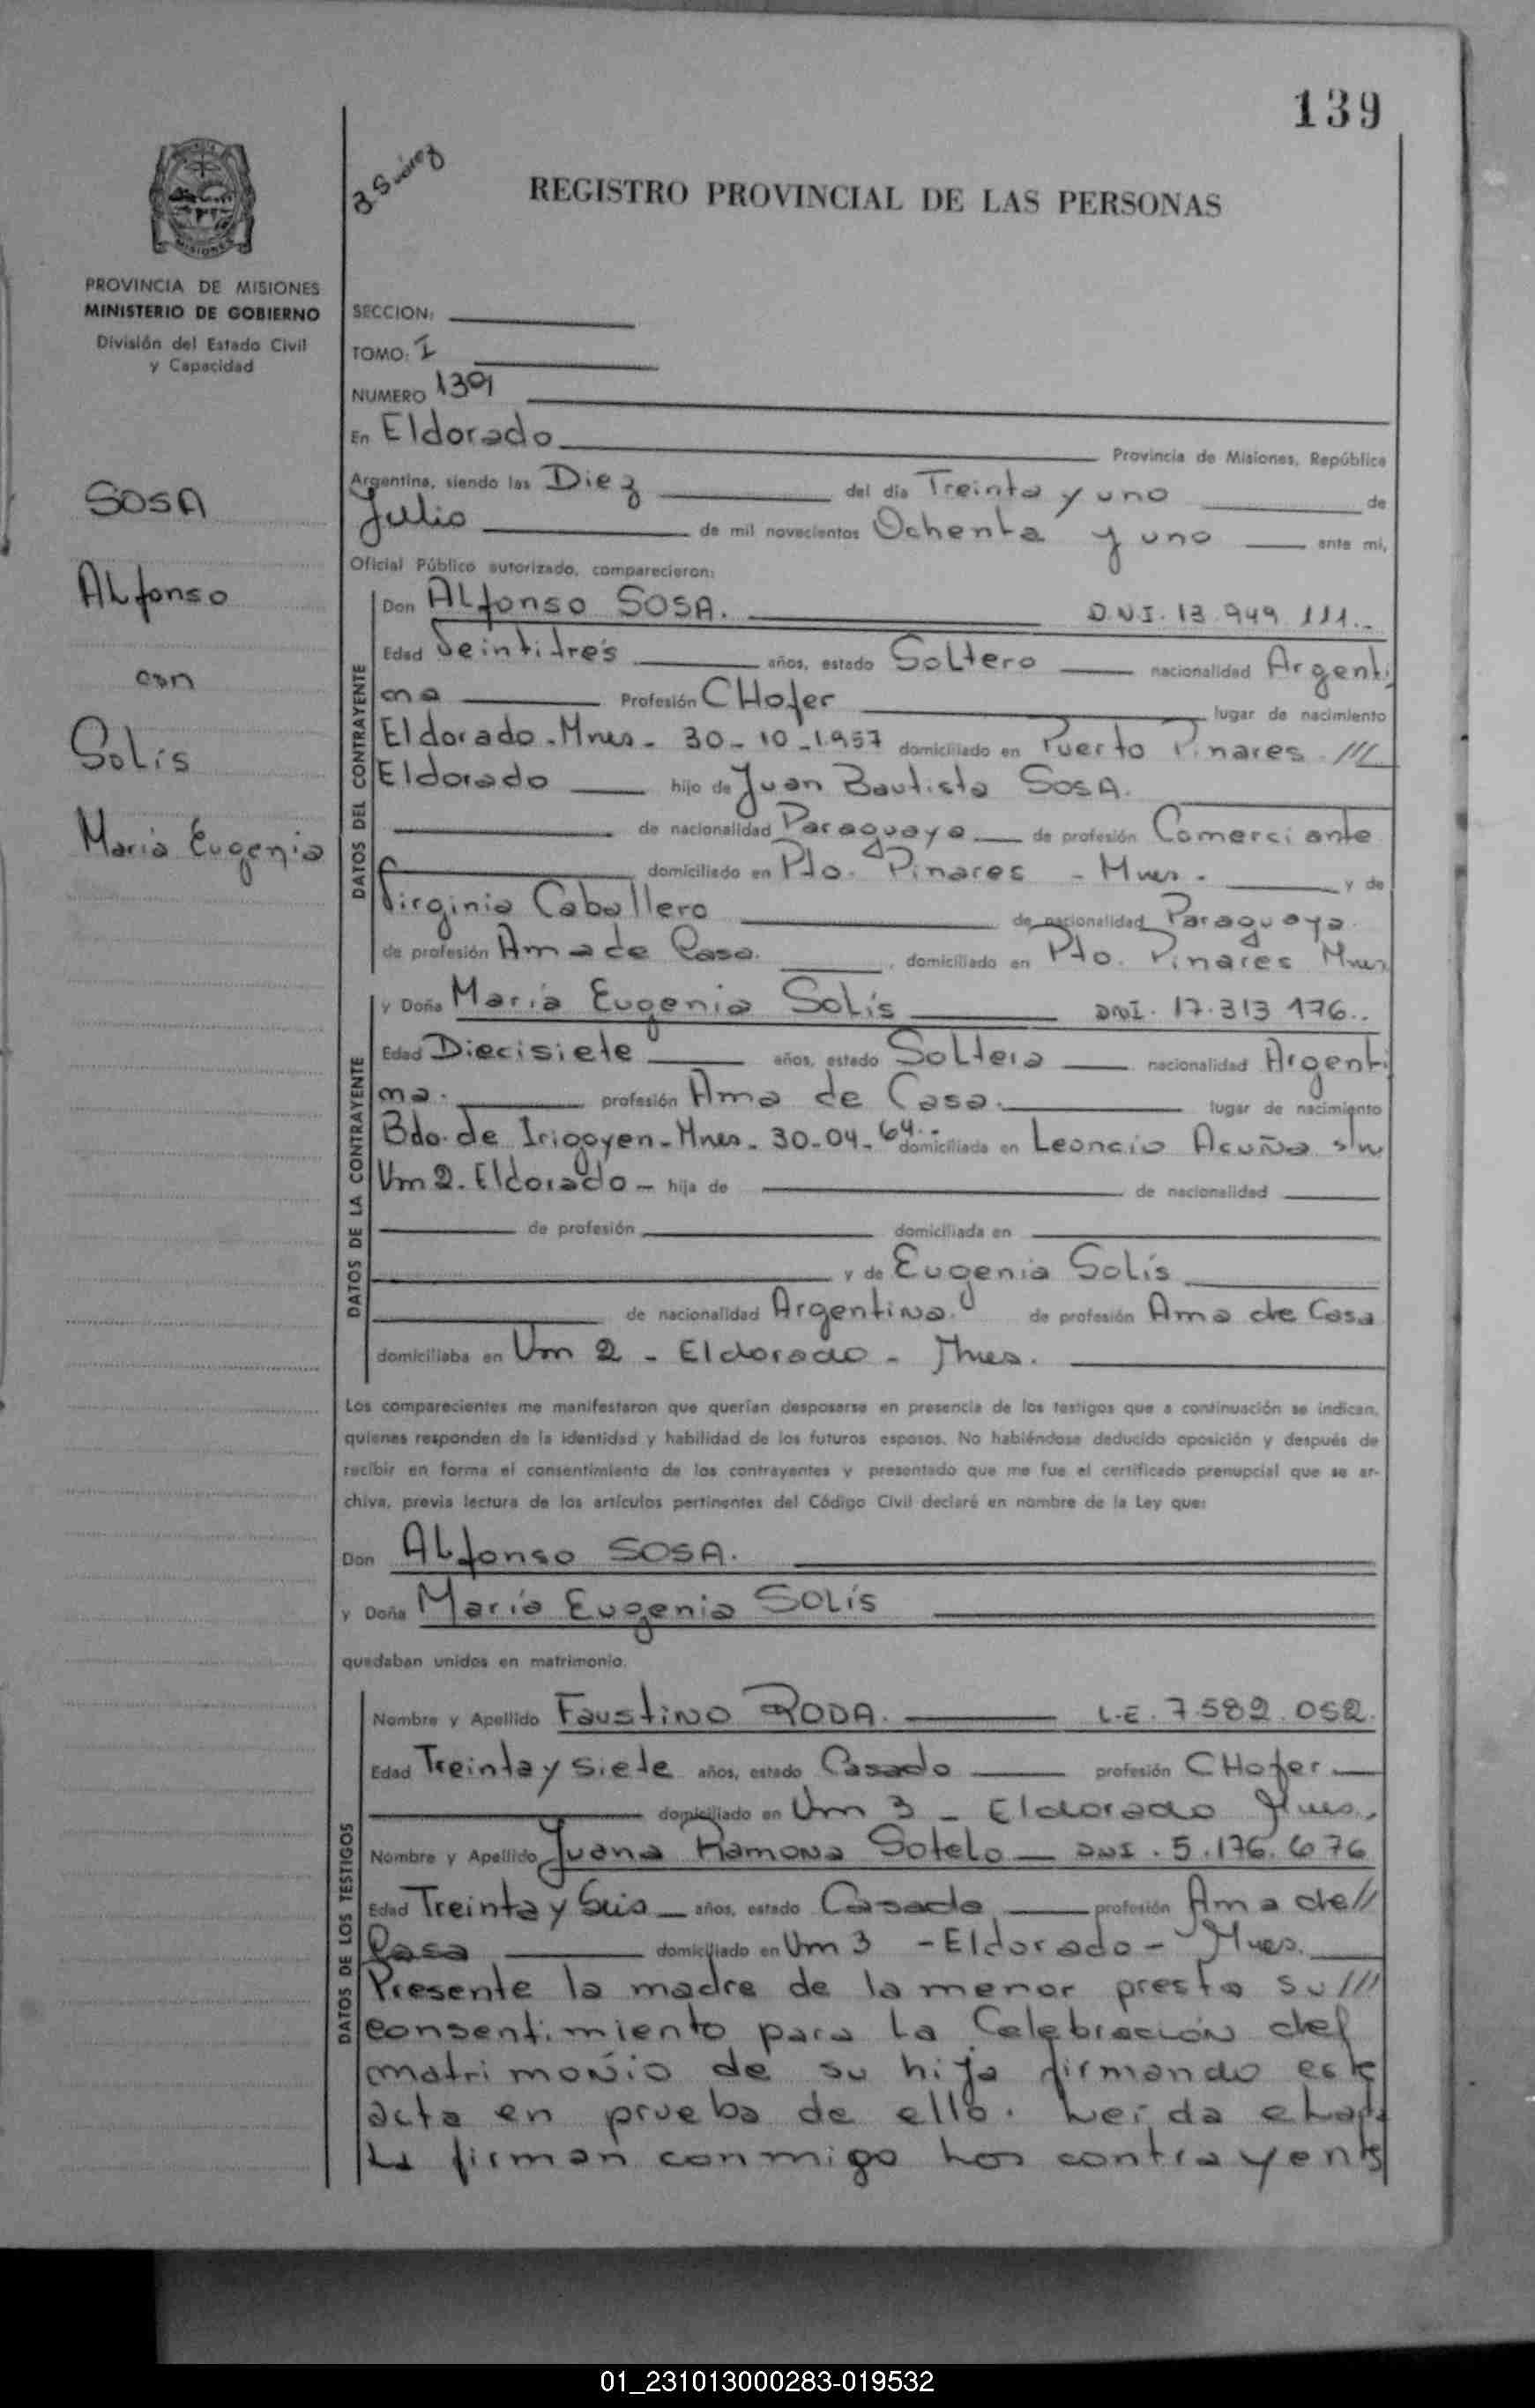 139
B Suárez
REGISTRO PROVINCIAL DE LAS PERSONAS
MISIONES
PROVINCIA DE MISIONES
MINISTERIO DE GOBIERNO
División del Estado Civil
y Capacidad
SOSA
ALfonso
con
Solis
Maria Eugenia
SECCION:
TOMO: I
NUMERO 139
En Eldorado Provincia de Misiones, República
Argentina, siendo las Diez del día Treinta y uno de
Julio de mil novecientos Ochenta y uno ante mi,
Oficial Público autorizado, comparecieron:
DATOS DEL CONTRAYENTE
Don ALfonso SOSA. D.N.I. 13.949.111.-
Edad Veintitrés años, estado SoLtero nacionalidad Argenti
na Profesión CHofer lugar de nacimiento
Eldorado-Mnes- 30-10-1957 domiciliado en Puerto Pinares ///
Eldorado hijo de Juan Bautista SOSA.
de nacionalidad Paraguaya de profesión Comerciante
domiciliado en Pto. Pinares - Mnes. y de
Virginia Caballero de nacionalidad Paraguaya.
de profesión Ama de Casa. , domiciliado en Pto. Pinares Mnes
DATOS DE LA CONTRAYENTE
y Doña María Eugenia SoLís DNI. 17.313 176..
Edad Diecisiete años, estado SoLtera nacionalidad Argenti
na. profesión Ama de Casa. lugar de nacimiento
Bdo. de Irigoyen-Mnes- 30-04-64.. domiciliada en Leoncio Acuña s/n
Km 2. Eldorado - hija de de nacionalidad
de profesión domiciliada en
y de Eugenia Solís
de nacionalidad Argentina. de profesión Ama de Casa
domiciliaba en Km 2 - Eldorado - Mnes.
Los comparecientes me manifestaron que querían desposarse en presencia de los testigos que a continuación se indican,
quienes responden de la identidad y habilidad de los futuros esposos. No habiéndose deducido oposición y después de
recibir en forma el consentimiento de los contrayentes y presentado que me fue el certificado prenupcial que se ar-
chiva, previa lectura de los artículos pertinentes del Código Civil declaré en nombre de la Ley que:
Don ALfonso SOSA.
y Doña María Eugenia SOLís
quedaban unidos en matrimonio.
DATOS DE LOS TESTIGOS
Nombre y Apellido Faustino RODA. L.E. 7.582.052.
Edad Treinta y siete años, estado Casado profesión CHofer
domiciliado en Km 3 - Eldorado Mnes.
Nombre y Apellido Juana Ramona Sotelo - DNI. 5.176.676
Edad Treinta y Seis años, estado Casada profesión Ama de//
Casa domiciliado en Km 3 - Eldorado - Mnes.
Presente la madre de la menor presta su ///
consentimiento para La Celebración del
matrimonio de su hija firmando este
acta en prueba de ello. Leída el acta
La firman conmigo Los contrayentes
01_231013000283-019532